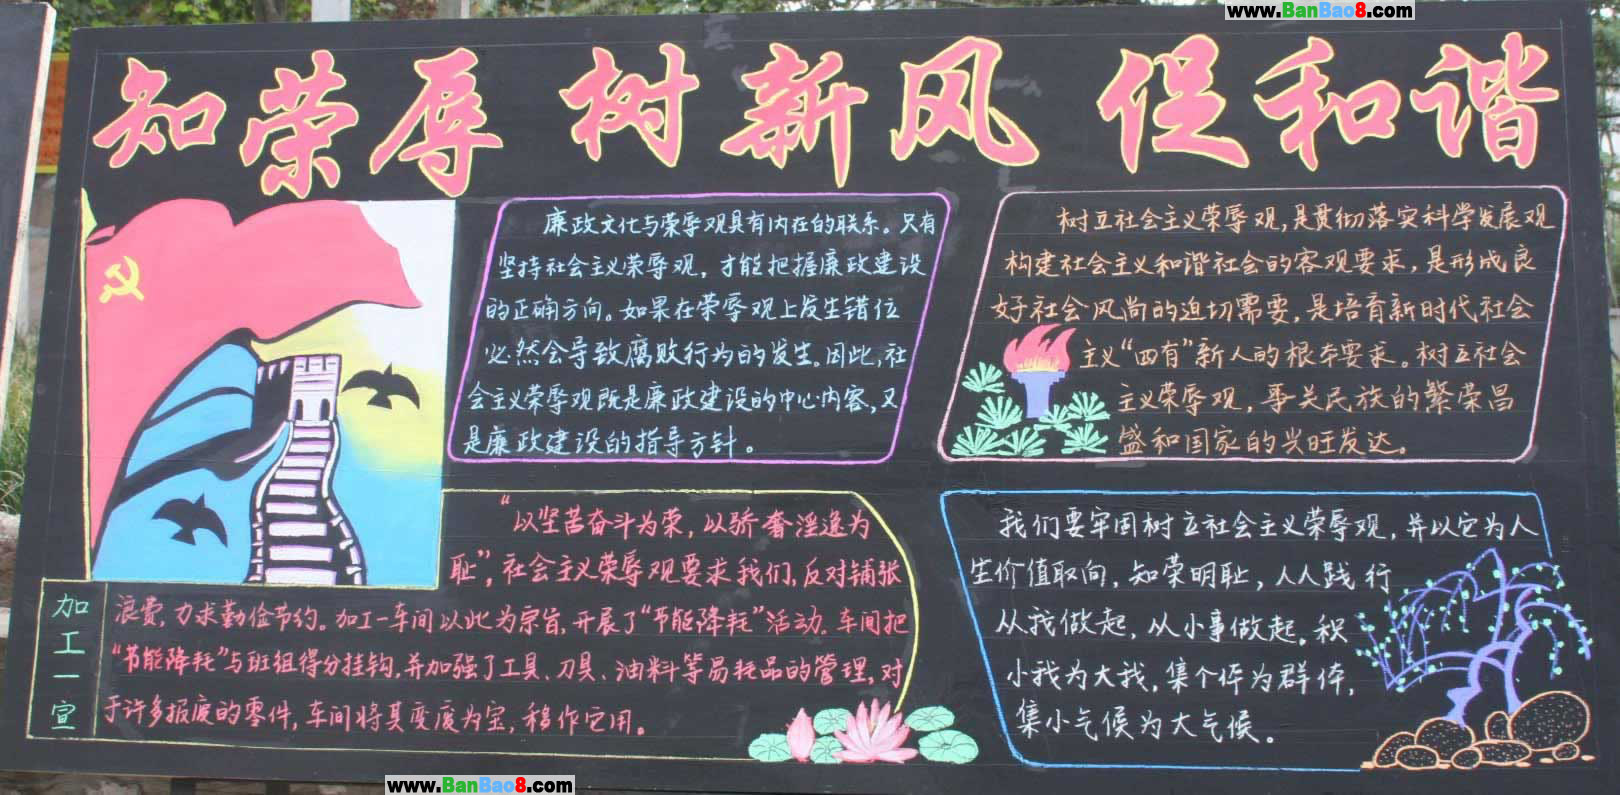 www.BanBao8.com
知荣辱 树新风 促和谐
廉政文化与荣辱观具有内在的联系。只有
坚持社会主义荣辱观，才能把握廉政建设
的正确方向。如果在荣辱观上发生错位
必然会导致腐败行为的发生。因此，社
会主义荣辱观既是廉政建设的中心内容，又
是廉政建设的指导方针。
树立社会主义荣辱观，是贯彻落实科学发展观
构建社会主义和谐社会的客观要求，是形成良
好社会风尚的迫切需要，是培育新时代社会
主义“四有”新人的根本要求。树立社会
主义荣辱观，事关民族的繁荣昌
盛和国家的兴旺发达。
“以坚苦奋斗为荣，以骄奢淫逸为
耻”，社会主义荣辱观要求我们，反对铺张
浪费，力求勤俭节约。加工一车间以此为宗旨，开展了“节能降耗”活动。车间把
“节能降耗”与班组得分挂钩，并加强了工具、刀具、油料等易耗品的管理，对
于许多报废的零件，车间将其变废为宝，移作它用。
加工一宣
我们要牢固树立社会主义荣辱观，并以它为人
生价值取向，知荣明耻，人人践行
从我做起，从小事做起。积
小我为大我，集个体为群体，
集小气候为大气候。
www.BanBao8.com